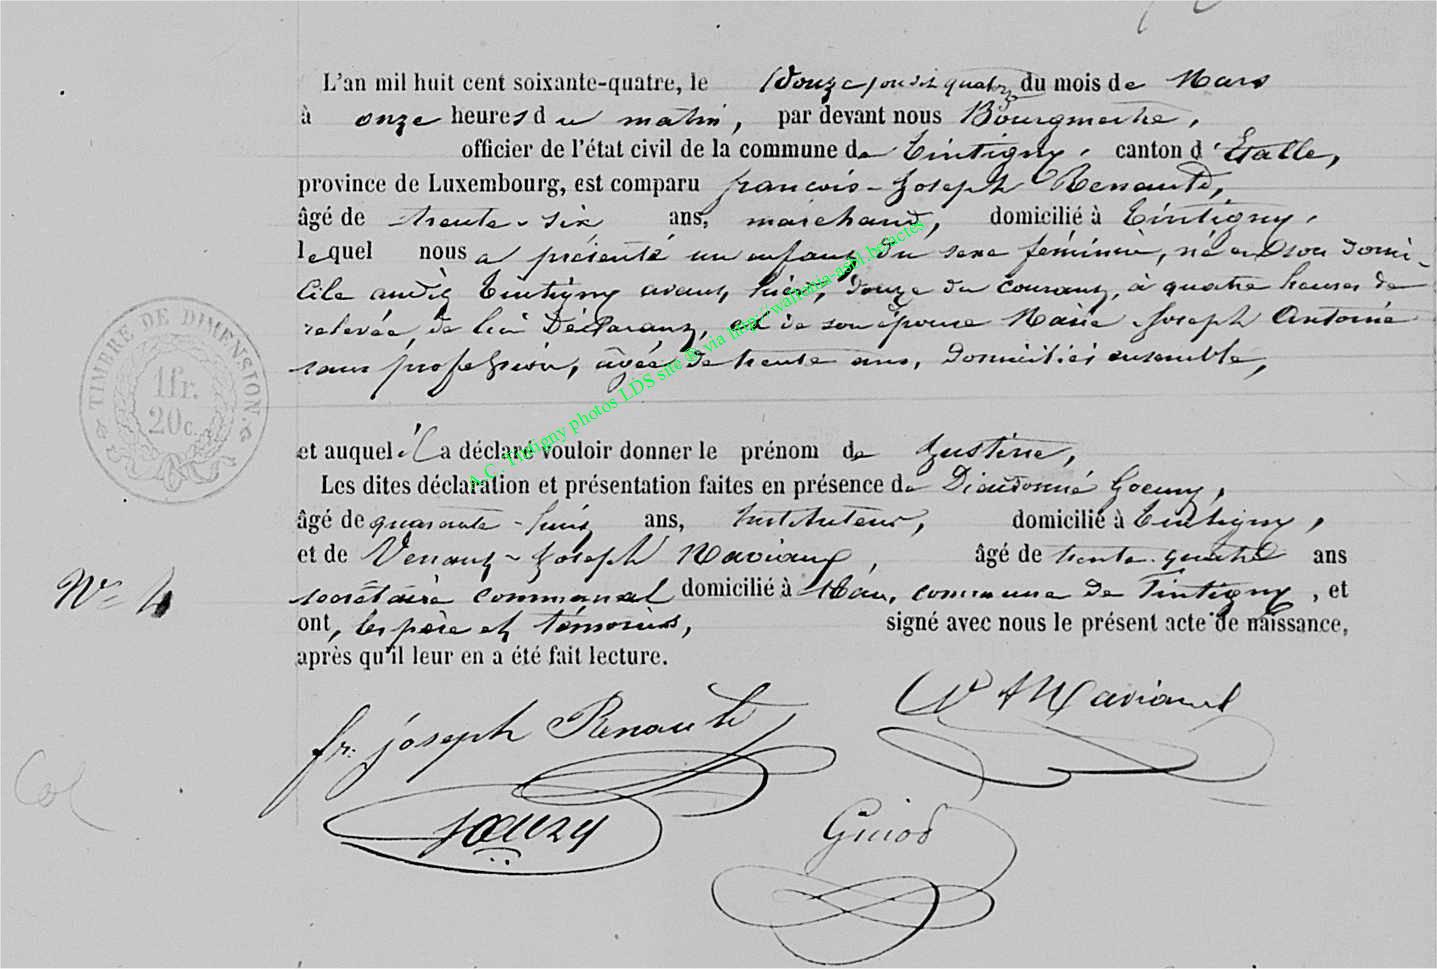 L'an mil huit cent soixante-quatre, le douze jour dit quatorze du mois de Mars
à onze heures du matin, par devant nous Bourgmestre,
officier de l'état civil de la commune de Tintigny, canton d'Etalle,
province de Luxembourg, est comparu françois-Joseph Renauld,
âgé de trente-six ans, marchand, domicilié à Tintigny,
lequel nous a présenté un enfant du sexe féminin, né en son domi-
cile audit Tintigny avant hier, douze du courant, à quatre heures de
relevée, de lui Déclarant, et de son épouse Marie Joseph Antoine
sans profession, âgée de trente ans, domiciliés ensemble,
TIMBRE DE DIMENSION
1fr.
20c.
et auquel il a déclaré vouloir donner le prénom de Justine,
Les dites déclaration et présentation faites en présence de Dieudonné Goeury,
âgé de quarante-huit ans, Instituteur, domicilié à Tintigny,
et de Venant-Joseph Maviaux, âgé de trente-quatre ans
N° 4
secrétaire communal domicilié à Han, commune de Tintigny, et
ont, les père et témoins, signé avec nous le présent acte de naissance,
après qu'il leur en a été fait lecture.
fr. joseph Renauld
Goeury
Guiod
Col
A.C. Tintigny photos LDS site ® via http://wallonia-asbl.be/actes